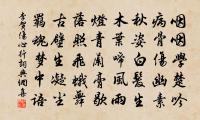 咽咽學楚吟
病骨傷幽素
秋姿白髮生
木葉啼風雨
燈青蘭膏歇
落照飛蛾舞
古壁生凝塵
羈魂夢中語
李賀傷心行詞典網書